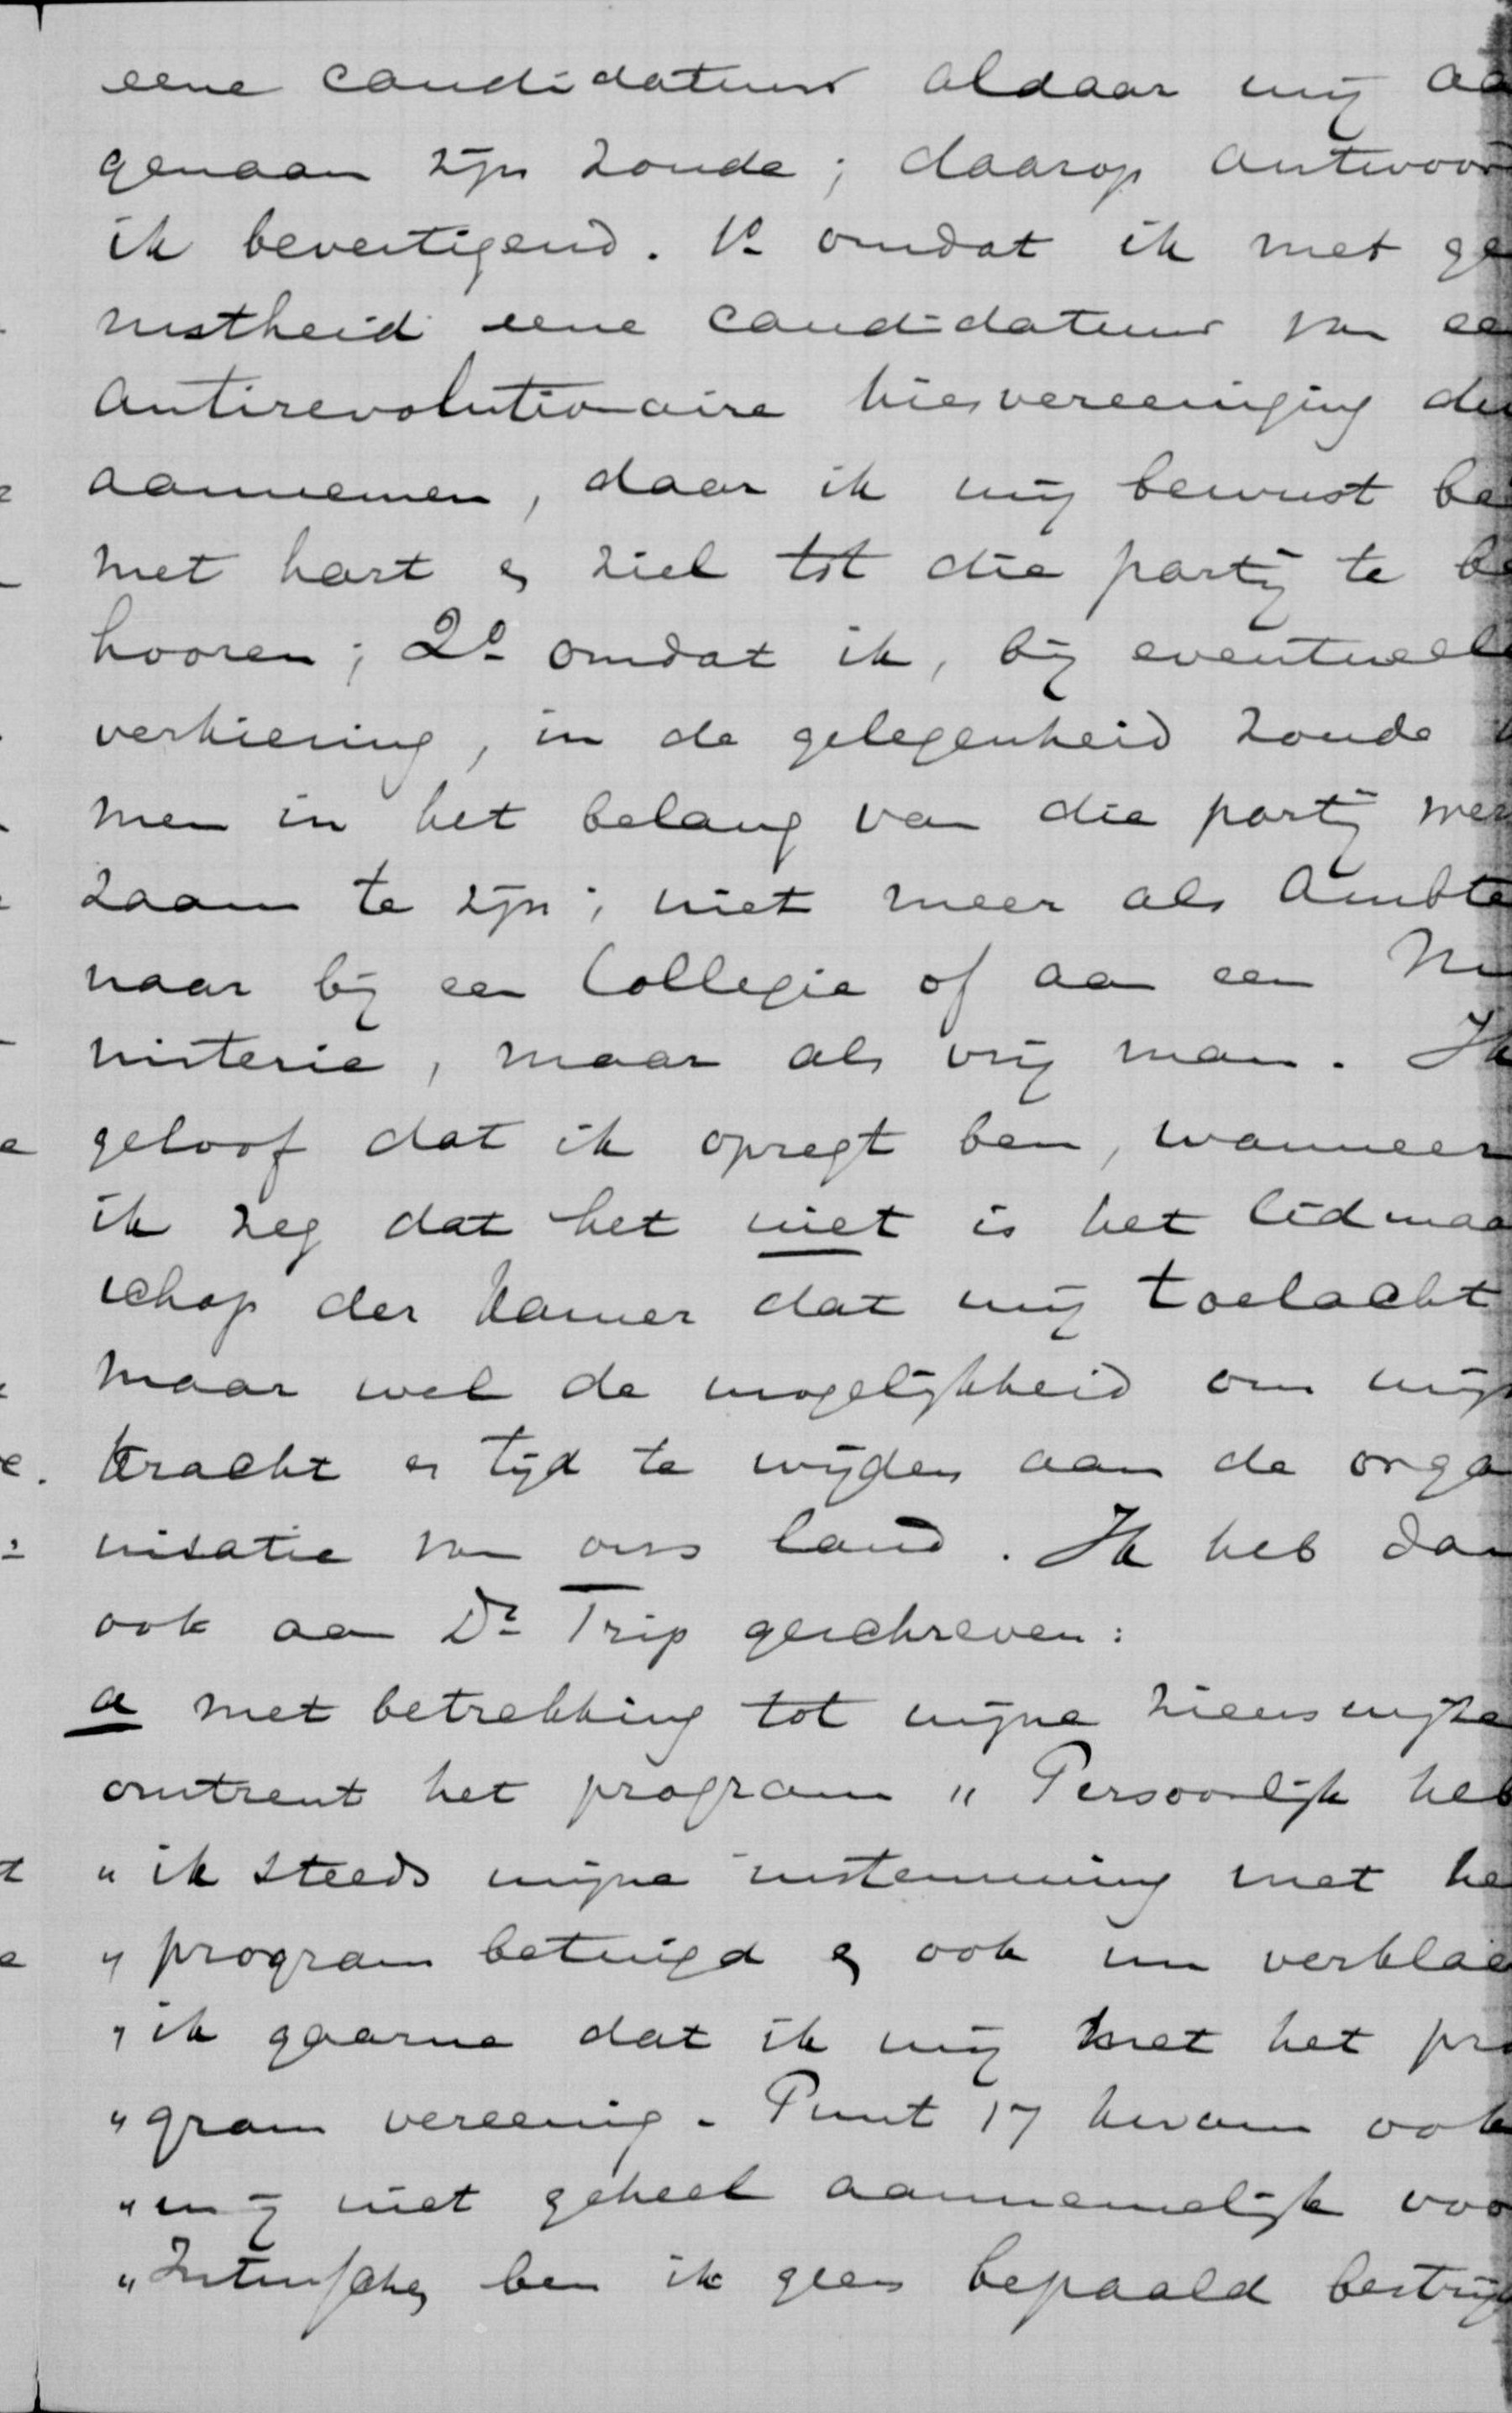 eene candidatuur aldaar mij aa
genaam zijn zoude; daarop antwoor
ik bevestigend. 1o omdat ik met ge
rustheid eene candidatuur van ee
antirevolutionaire kiesvereeniging du
aannemen, daar ik mij bewust be
met hart en ziel tot die partij te be
hooren; 2o omdat ik, bij eventueele
verkiezing, in de gelegenheid zoude k
men in het belang van die partij wer
zaam te zijn; niet meer als Ambte
naar bij een Collegie of aan een Mi
nisterie, maar als vrij man. Ik
geloof dat ik opregt ben, wanneer
ik zeg dat het niet is het lidmaa
schap der Kamer dat mij toelacht
maar wel de mogelijkheid om mijn
kracht en tijd te wijden aan de orga
nisatie van ons land. Ik heb dan
ook aan Dr Trip geschreven:
a met betrekking tot mijne zienswijze
omtrent het program „Persoonlijk heb
„ik steeds mijne instemming met he
„program betuigd en ook nu verklaa
„ik gaarne dat ik mij met het pro
„gram vereenig. Punt 17 kwam ook
„mij niet geheel aannemelijk voo
„Intusschen ben ik geen bepaald bestrij